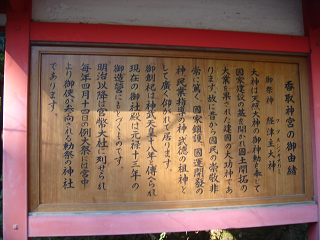 香取神宮の御由緒
御祭神 経津主大神
大神は天照大神の御神勅を奉じて
国家建設の基を開かれ国土開拓の
大業を果された建国の大功神であ
ります。故に昔から国民の崇敬非
常に篤く、国家鎮護、国運開発の
神、民業指導の神、武徳の祖神と
して広く仰がれて居ります。
御創祀は神武天皇十八年と傳へられ
現在の御社殿は元禄十三年の
御造営にもとづくものです。
明治以降は官幣大社に列せられ、
毎年四月十四日の例大祭には宮中
より御使が参向される勅祭の神社
であります。